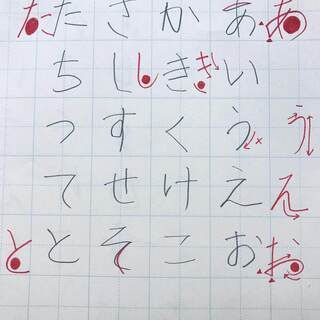 あうえお
あいうえお
き
かきくけこ
し
さしすせそ
たちつてと
たと